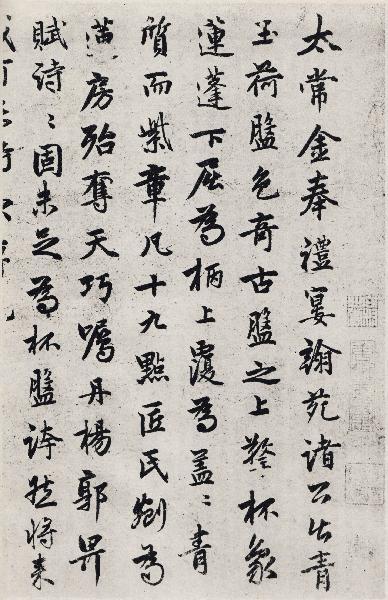 太常金奉禮宴翰苑諸公出青
玉荷盤色奇古盤之上擎杯象
蓮蓬下屈為柄上覆為蓋〻青
質而紫章凡十九點匠氏劉為
蓮房殆奪天巧嘱丹楊郭畀
賦詩〻固未足為杯盤誇然將来